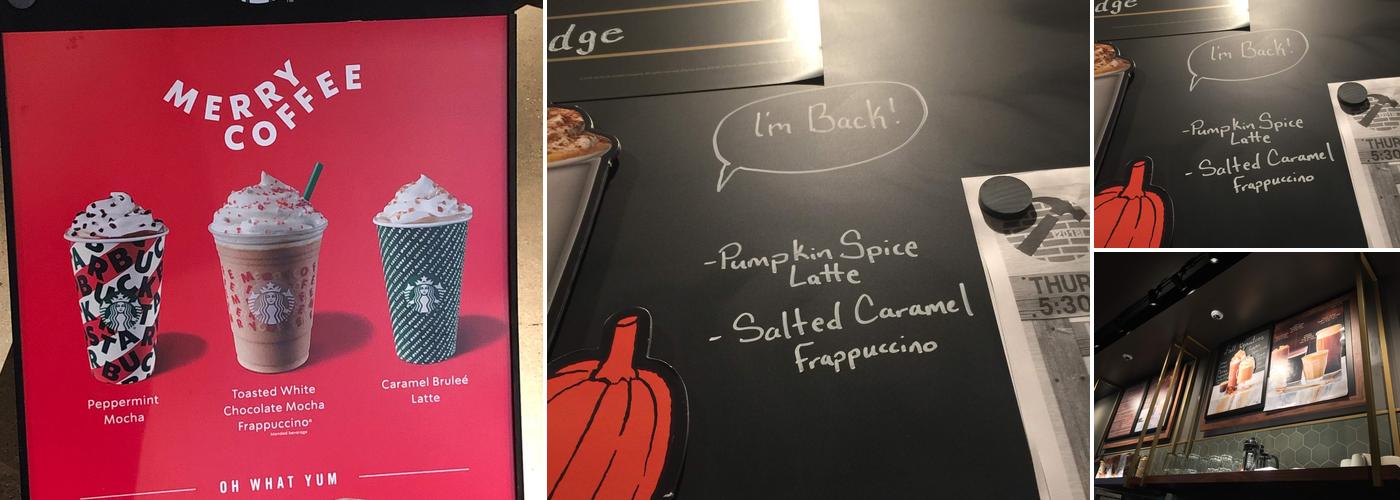 MERRY
COFFEE
Peppermint
Mocha
Toasted White
Chocolate Mocha
Frappuccino®
blended beverage
Caramel Bruleé
Latte
OH WHAT YUM
dge
I'm Back!
-Pumpkin Spice
Latte
- Salted Caramel
Frappuccino
THUR
5:30
dge
I'm Back!
-Pumpkin Spice
Latte
- Salted Caramel
Frappuccino
THUR
5:30